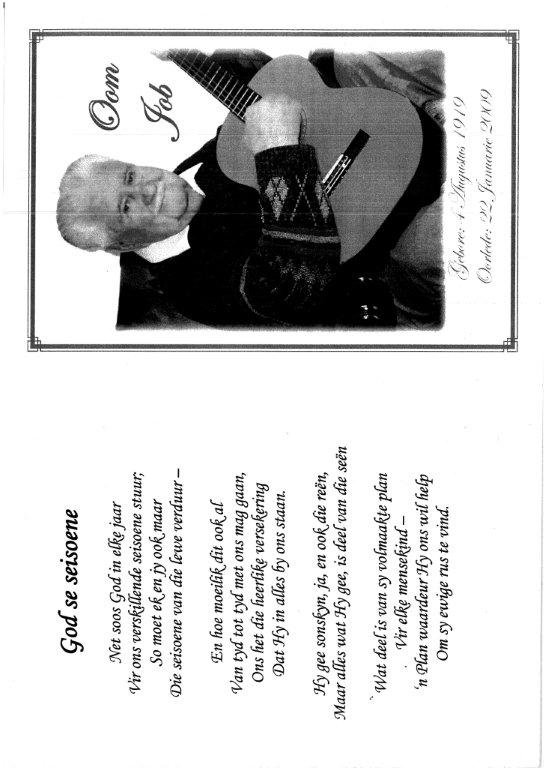 God se seisoene
Net soos God in elke jaar
Vir ons verskillende seisoene stuur;
So moet ek en jy ook maar
Die seisoene van die lewe verduur –
En hoe moeilik dit ook al
Van tyd tot tyd met ons mag gaan,
Ons het die heerlike versekering
Dat Hy in alles by ons staan.
Hy gee sonskyn, ja, en ook die reën,
Maar alles wat Hy gee, is deel van die seën
` Wat deel is van sy volmaakte plan
Vir elke mensekind –
'n Plan waardeur Hy ons wil help
Om sy ewige rus te vind.
Oom
Job
Gebore: 4 Augustus 1919
Oorlede: 22 Januarie 2009